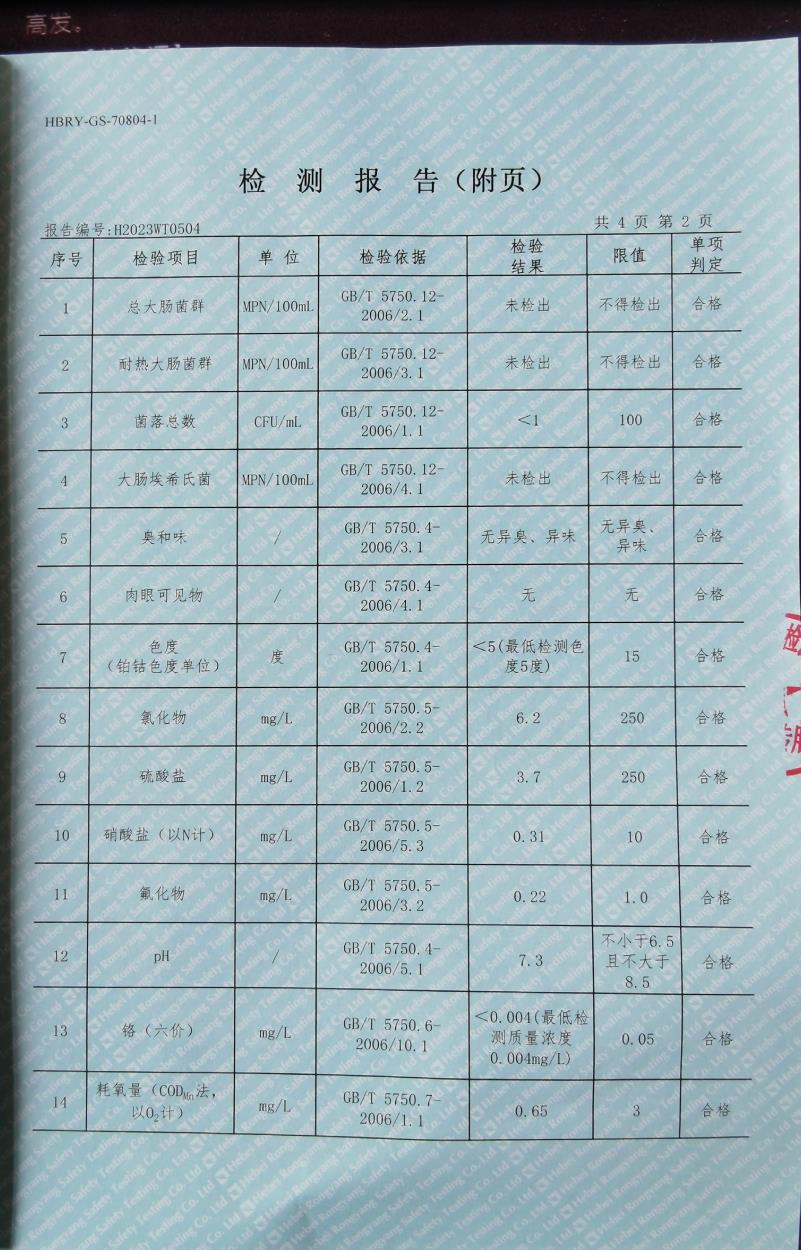 高发。
HBRY-GS-70804-1
检 测 报 告（附页）
报告编号:H2023WT0504
共 4 页 第 2 页
序号 检验项目 单 位 检验依据 检验结果 限值 单项判定
1 总大肠菌群 MPN/100mL GB/T 5750.12-2006/2.1 未检出 不得检出 合格
2 耐热大肠菌群 MPN/100mL GB/T 5750.12-2006/3.1 未检出 不得检出 合格
3 菌落总数 CFU/mL GB/T 5750.12-2006/1.1 <1 100 合格
4 大肠埃希氏菌 MPN/100mL GB/T 5750.12-2006/4.1 未检出 不得检出 合格
5 臭和味 / GB/T 5750.4-2006/3.1 无异臭、异味 无异臭、异味 合格
6 肉眼可见物 / GB/T 5750.4-2006/4.1 无 无 合格
7 色度（铂钴色度单位） 度 GB/T 5750.4-2006/1.1 <5(最低检测色度5度) 15 合格
8 氯化物 mg/L GB/T 5750.5-2006/2.2 6.2 250 合格
9 硫酸盐 mg/L GB/T 5750.5-2006/1.2 3.7 250 合格
10 硝酸盐（以N计） mg/L GB/T 5750.5-2006/5.3 0.31 10 合格
11 氟化物 mg/L GB/T 5750.5-2006/3.2 0.22 1.0 合格
12 pH / GB/T 5750.4-2006/5.1 7.3 不小于6.5且不大于8.5 合格
13 铬（六价） mg/L GB/T 5750.6-2006/10.1 <0.004(最低检测质量浓度0.004mg/L) 0.05 合格
14 耗氧量（CODMn法，以O2计） mg/L GB/T 5750.7-2006/1.1 0.65 3 合格
Hebei Rongyang Safety Testing Co. Ltd